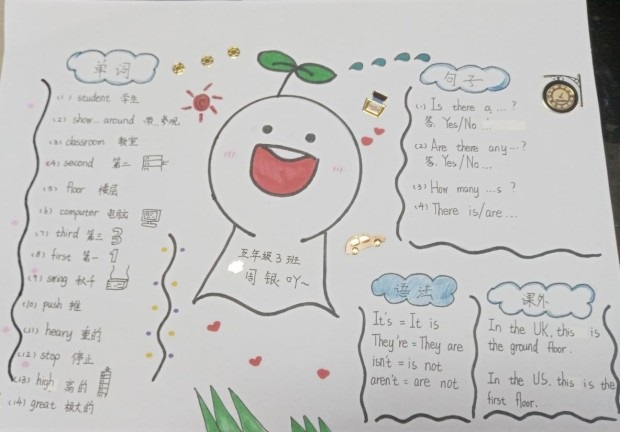 单词
(1) student 学生
(2) show... around 带...参观
(3) classroom 教室
(4) second 第二
(5) floor 楼层
(6) computer 电脑
(7) third 第三 3
(8) first 第一 1
(9) swing 秋千
(10) push 推
(11) heavy 重的
(12) stop 停止
(13) high 高的
(14) great 极大的
五年级3班
周 银 吖~
句子
(1) Is there a ... ?
答. Yes/No ...
(2) Are there any ... ?
答. Yes/No ...
(3) How many ...s ?
(4) There is/are ...
语法
It's = It is
They're = They are
isn't = is not
aren't = are not
课外
In the UK, this is
the ground floor.
In the US. this is the
first floor.